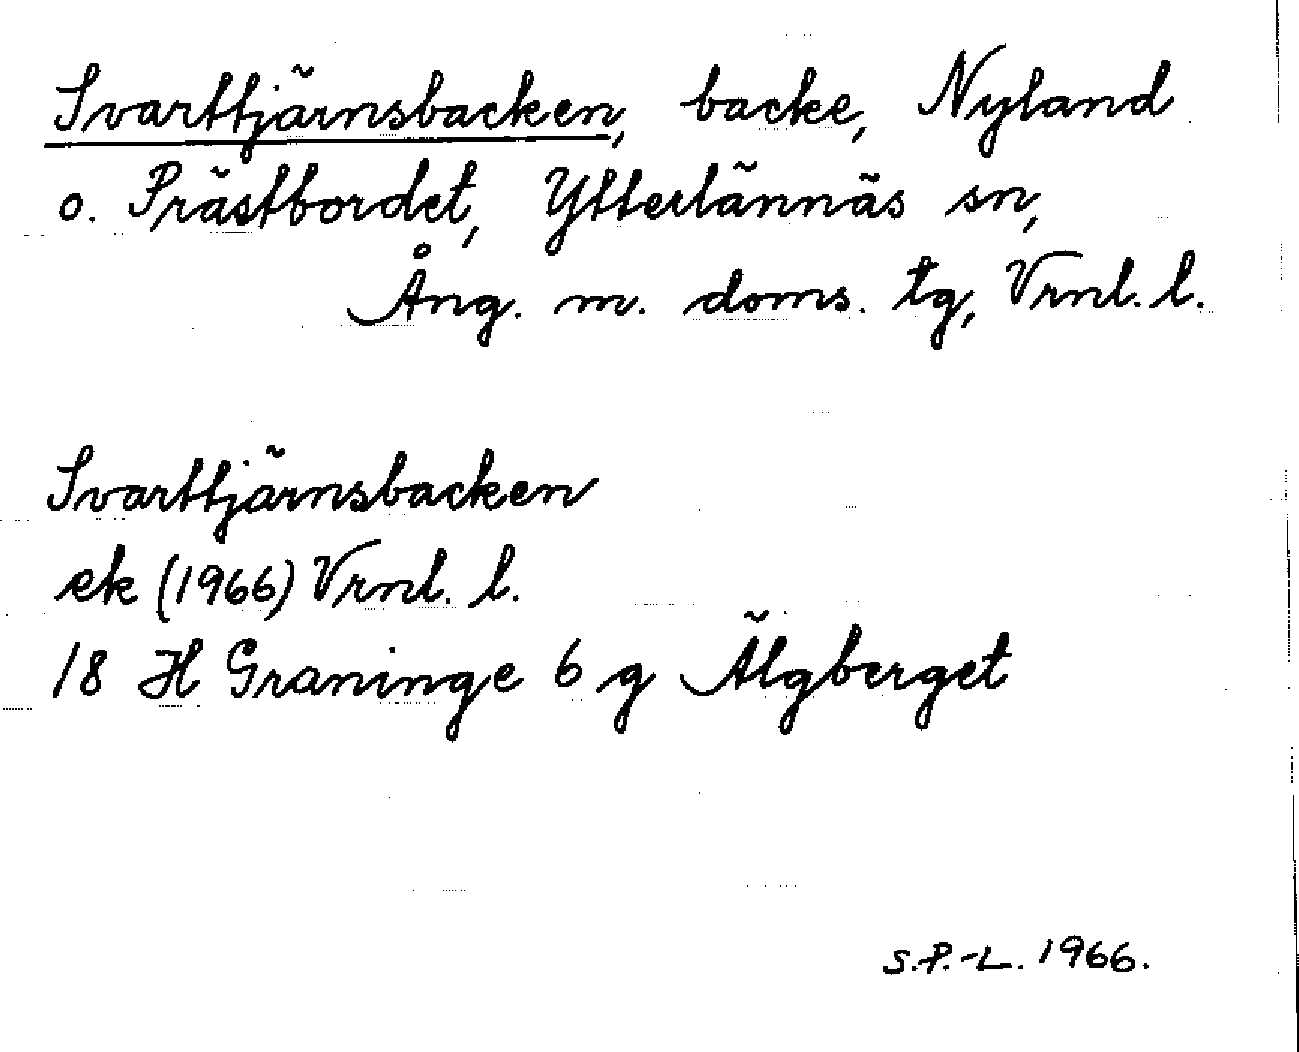 Svarttjärnsbacken, backe, Nyland
o. Prästbordet, Ytterlännäs sn,
Ång. m. doms. tg, Vrnl. l.
Svarttjärnsbacken
ek (1966) Vrnl. l.
18 H Graninge 6 g Älgberget
S.P.-L. 1966.